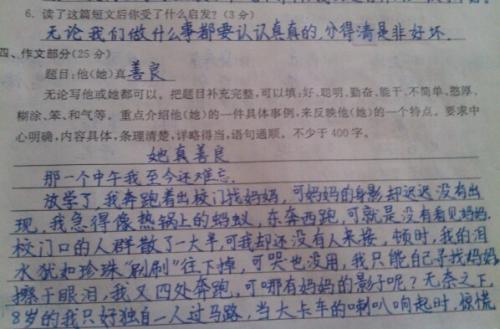 6. 读了这篇短文后你受了什么启发？(3分)
无论我们做什么事都要认认真真的，分得清是非好坏.
四、作文部分(25分)
题目：他(她)真善良
无论写他或她都可以。把题目补充完整，可以填：好、聪明、勤奋、能干、不简单、憨厚、
糊涂、笨、和气等。重点介绍他(她)的一件具体事例，来反映他(她)的一个特点。要求中
心明确，内容具体，条理清楚，详略得当，语句通顺。不少于400字。
她真善良
那一个中午我至今还难忘.
放学了，我奔跑着出校门找妈妈，可妈妈的身影却迟迟没有出
现，我急得像热锅上的蚂蚁，东奔西跑，可就是没有看见妈妈，
校门口的人群散了一大半，可我却还没有人来接，顿时，我的泪
水犹如珍珠“刷刷”往下掉，可哭也没用，我只能自己寻找妈妈，
擦干眼泪，我又四处奔跑，可哪有妈妈的影子呢？无奈之下，
8岁的我只好独自一人过马路，当大卡车的喇叭响起时，惊慌